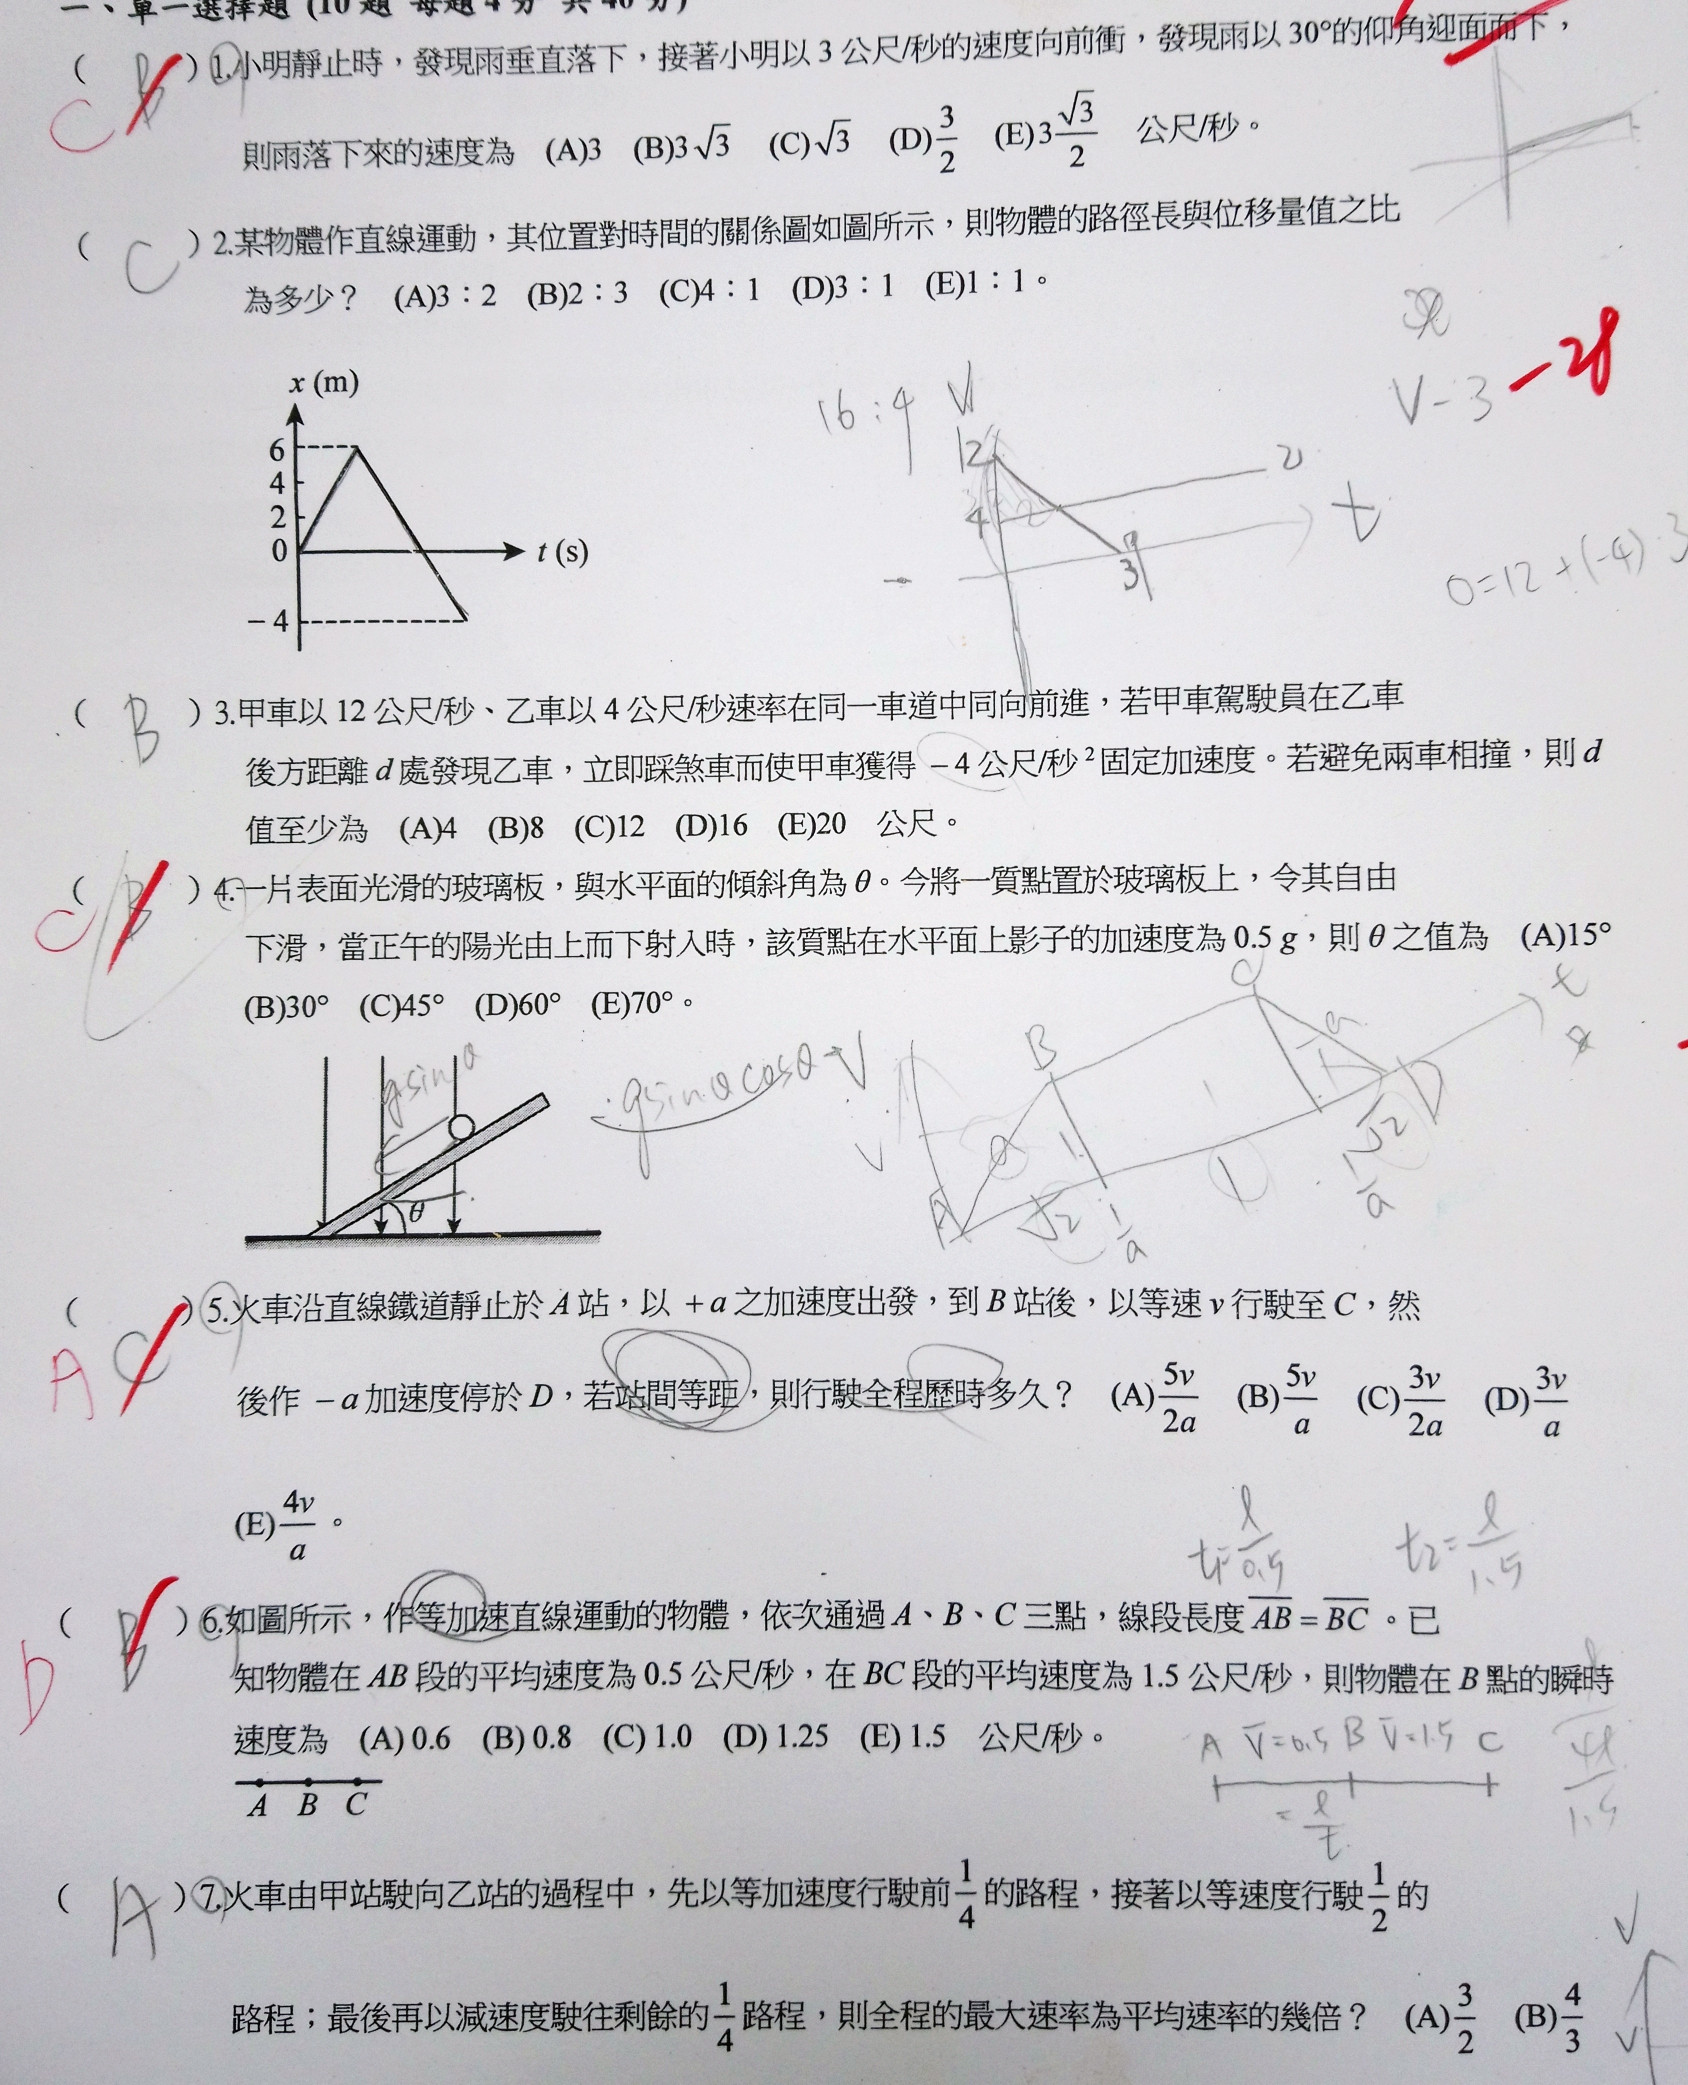 一、單一選擇題 (10 題 每題 4 分 共 40 分)
( B ) 1.小明靜止時，發現雨垂直落下，接著小明以 3 公尺/秒的速度向前衝，發現雨以 30°的仰角迎面而下，
C
則雨落下來的速度為 (A)3 (B)3√3 (C)√3 (D)3/2 (E)3√3/2 公尺/秒。
( C ) 2.某物體作直線運動，其位置對時間的關係圖如圖所示，則物體的路徑長與位移量值之比
為多少？ (A)3：2 (B)2：3 (C)4：1 (D)3：1 (E)1：1。
x (m)
6
4
2
0
-4
t (s)
16:4
V
12
4
2
3
t
V-3
-28
0=12+(-4)·3
( B ) 3.甲車以 12 公尺/秒、乙車以 4 公尺/秒速率在同一車道中同向前進，若甲車駕駛員在乙車
後方距離 d 處發現乙車，立即踩煞車而使甲車獲得 －4 公尺/秒² 固定加速度。若避免兩車相撞，則 d
值至少為 (A)4 (B)8 (C)12 (D)16 (E)20 公尺。
( B ) 4.一片表面光滑的玻璃板，與水平面的傾斜角為 θ。今將一質點置於玻璃板上，令其自由
C
下滑，當正午的陽光由上而下射入時，該質點在水平面上影子的加速度為 0.5 g，則 θ 之值為 (A)15°
(B)30° (C)45° (D)60° (E)70°。
gsinθ
θ
gsinθcosθ
V
V
A
B
C
D
a
a
1
1
√2
1/a
√2
1/a
t
( C ) 5.火車沿直線鐵道靜止於 A 站，以 +a 之加速度出發，到 B 站後，以等速 v 行駛至 C，然
A
後作 －a 加速度停於 D，若站間等距，則行駛全程歷時多久？ (A)5v/2a (B)5v/a (C)3v/2a (D)3v/a
(E)4v/a。
t1=l/0.5 t2=l/1.5
( B ) 6.如圖所示，作等加速直線運動的物體，依次通過 A、B、C 三點，線段長度 AB = BC 。已
D
知物體在 AB 段的平均速度為 0.5 公尺/秒，在 BC 段的平均速度為 1.5 公尺/秒，則物體在 B 點的瞬時
速度為 (A) 0.6 (B) 0.8 (C) 1.0 (D) 1.25 (E) 1.5 公尺/秒。
A B C
A V̄=0.5 B V̄=1.5 C
=l/t
( A ) 7.火車由甲站駛向乙站的過程中，先以等加速度行駛前 1/4 的路程，接著以等速度行駛 1/2 的
路程；最後再以減速度駛往剩餘的 1/4 路程，則全程的最大速率為平均速率的幾倍？ (A)3/2 (B)4/3
V
V